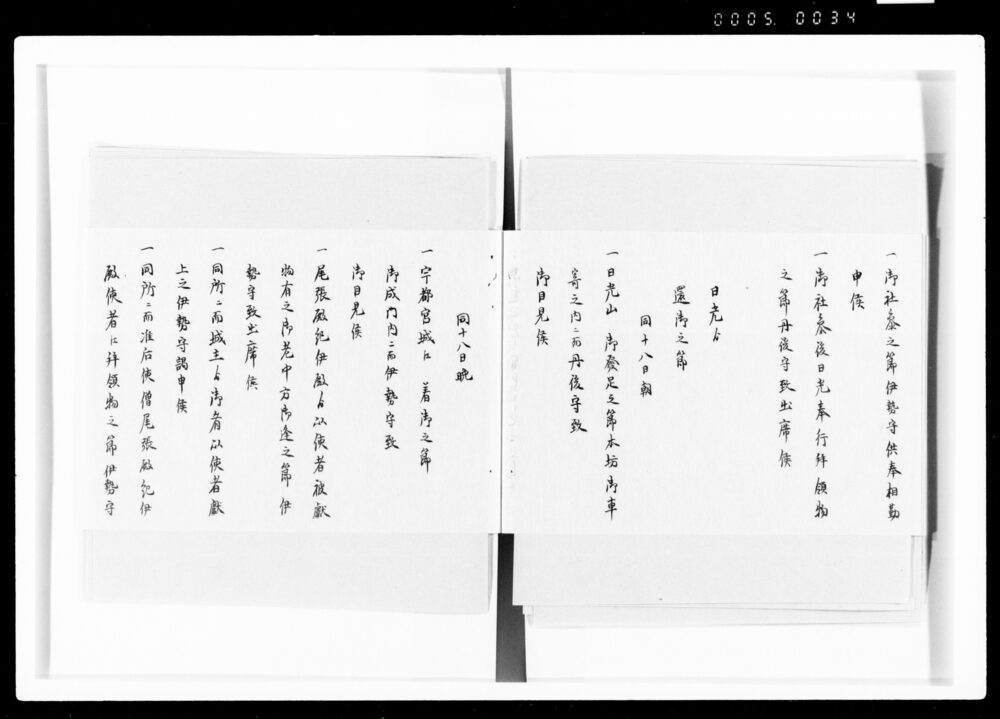 0005. 0034
一御社参之節伊勢守供奉相勤
申候
一御社参後日光奉行拝領物
之節丹後守致出席候
日光ゟ
還御之節
同十八日朝
一日光山　御發足之節本坊御車
寄之内ニ而丹後守致
御目見候
同十八日晩
一宇都宮城江　着御之節
御成門内ニ而伊勢守致
御目見候
一尾張殿紀伊殿ゟ以使者被獻
物有之御老中方御逢之節伊
勢守致出席候
一同所ニ而城主ゟ御肴以使者獻
上之伊勢守謁申候
一同所ニ而准后使僧尾張殿紀伊
殿使者江拝領物之節伊勢守